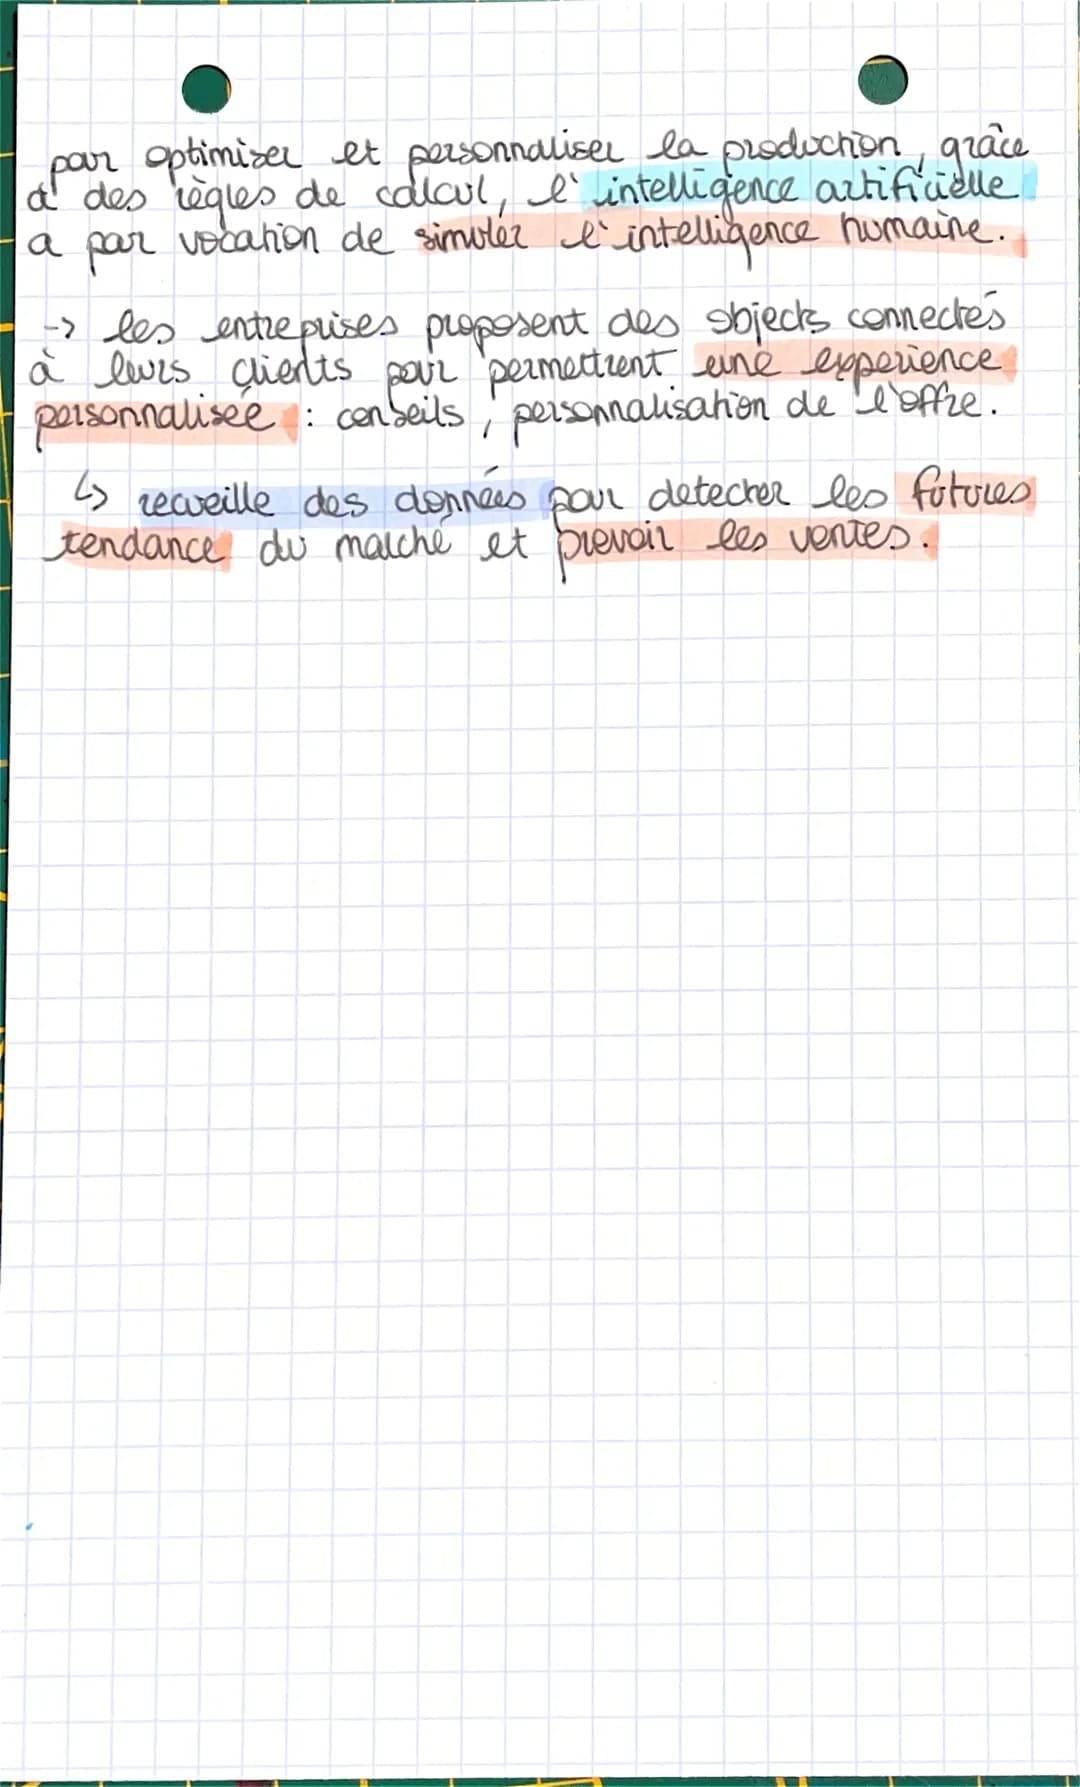 pour optimiser et personnaliser la production, grâce
à des règles de calcul, l'intelligence artificielle
a par vocation de simuler l'intelligence humaine.
-> les entreprises proposent des objects connectés
à leurs clients pour permettrent une experience
personnalisée : conseils, personnalisation de l'offre.
↳ recueille des données pour detecter les futures
tendance du marché et prevoir les ventes.